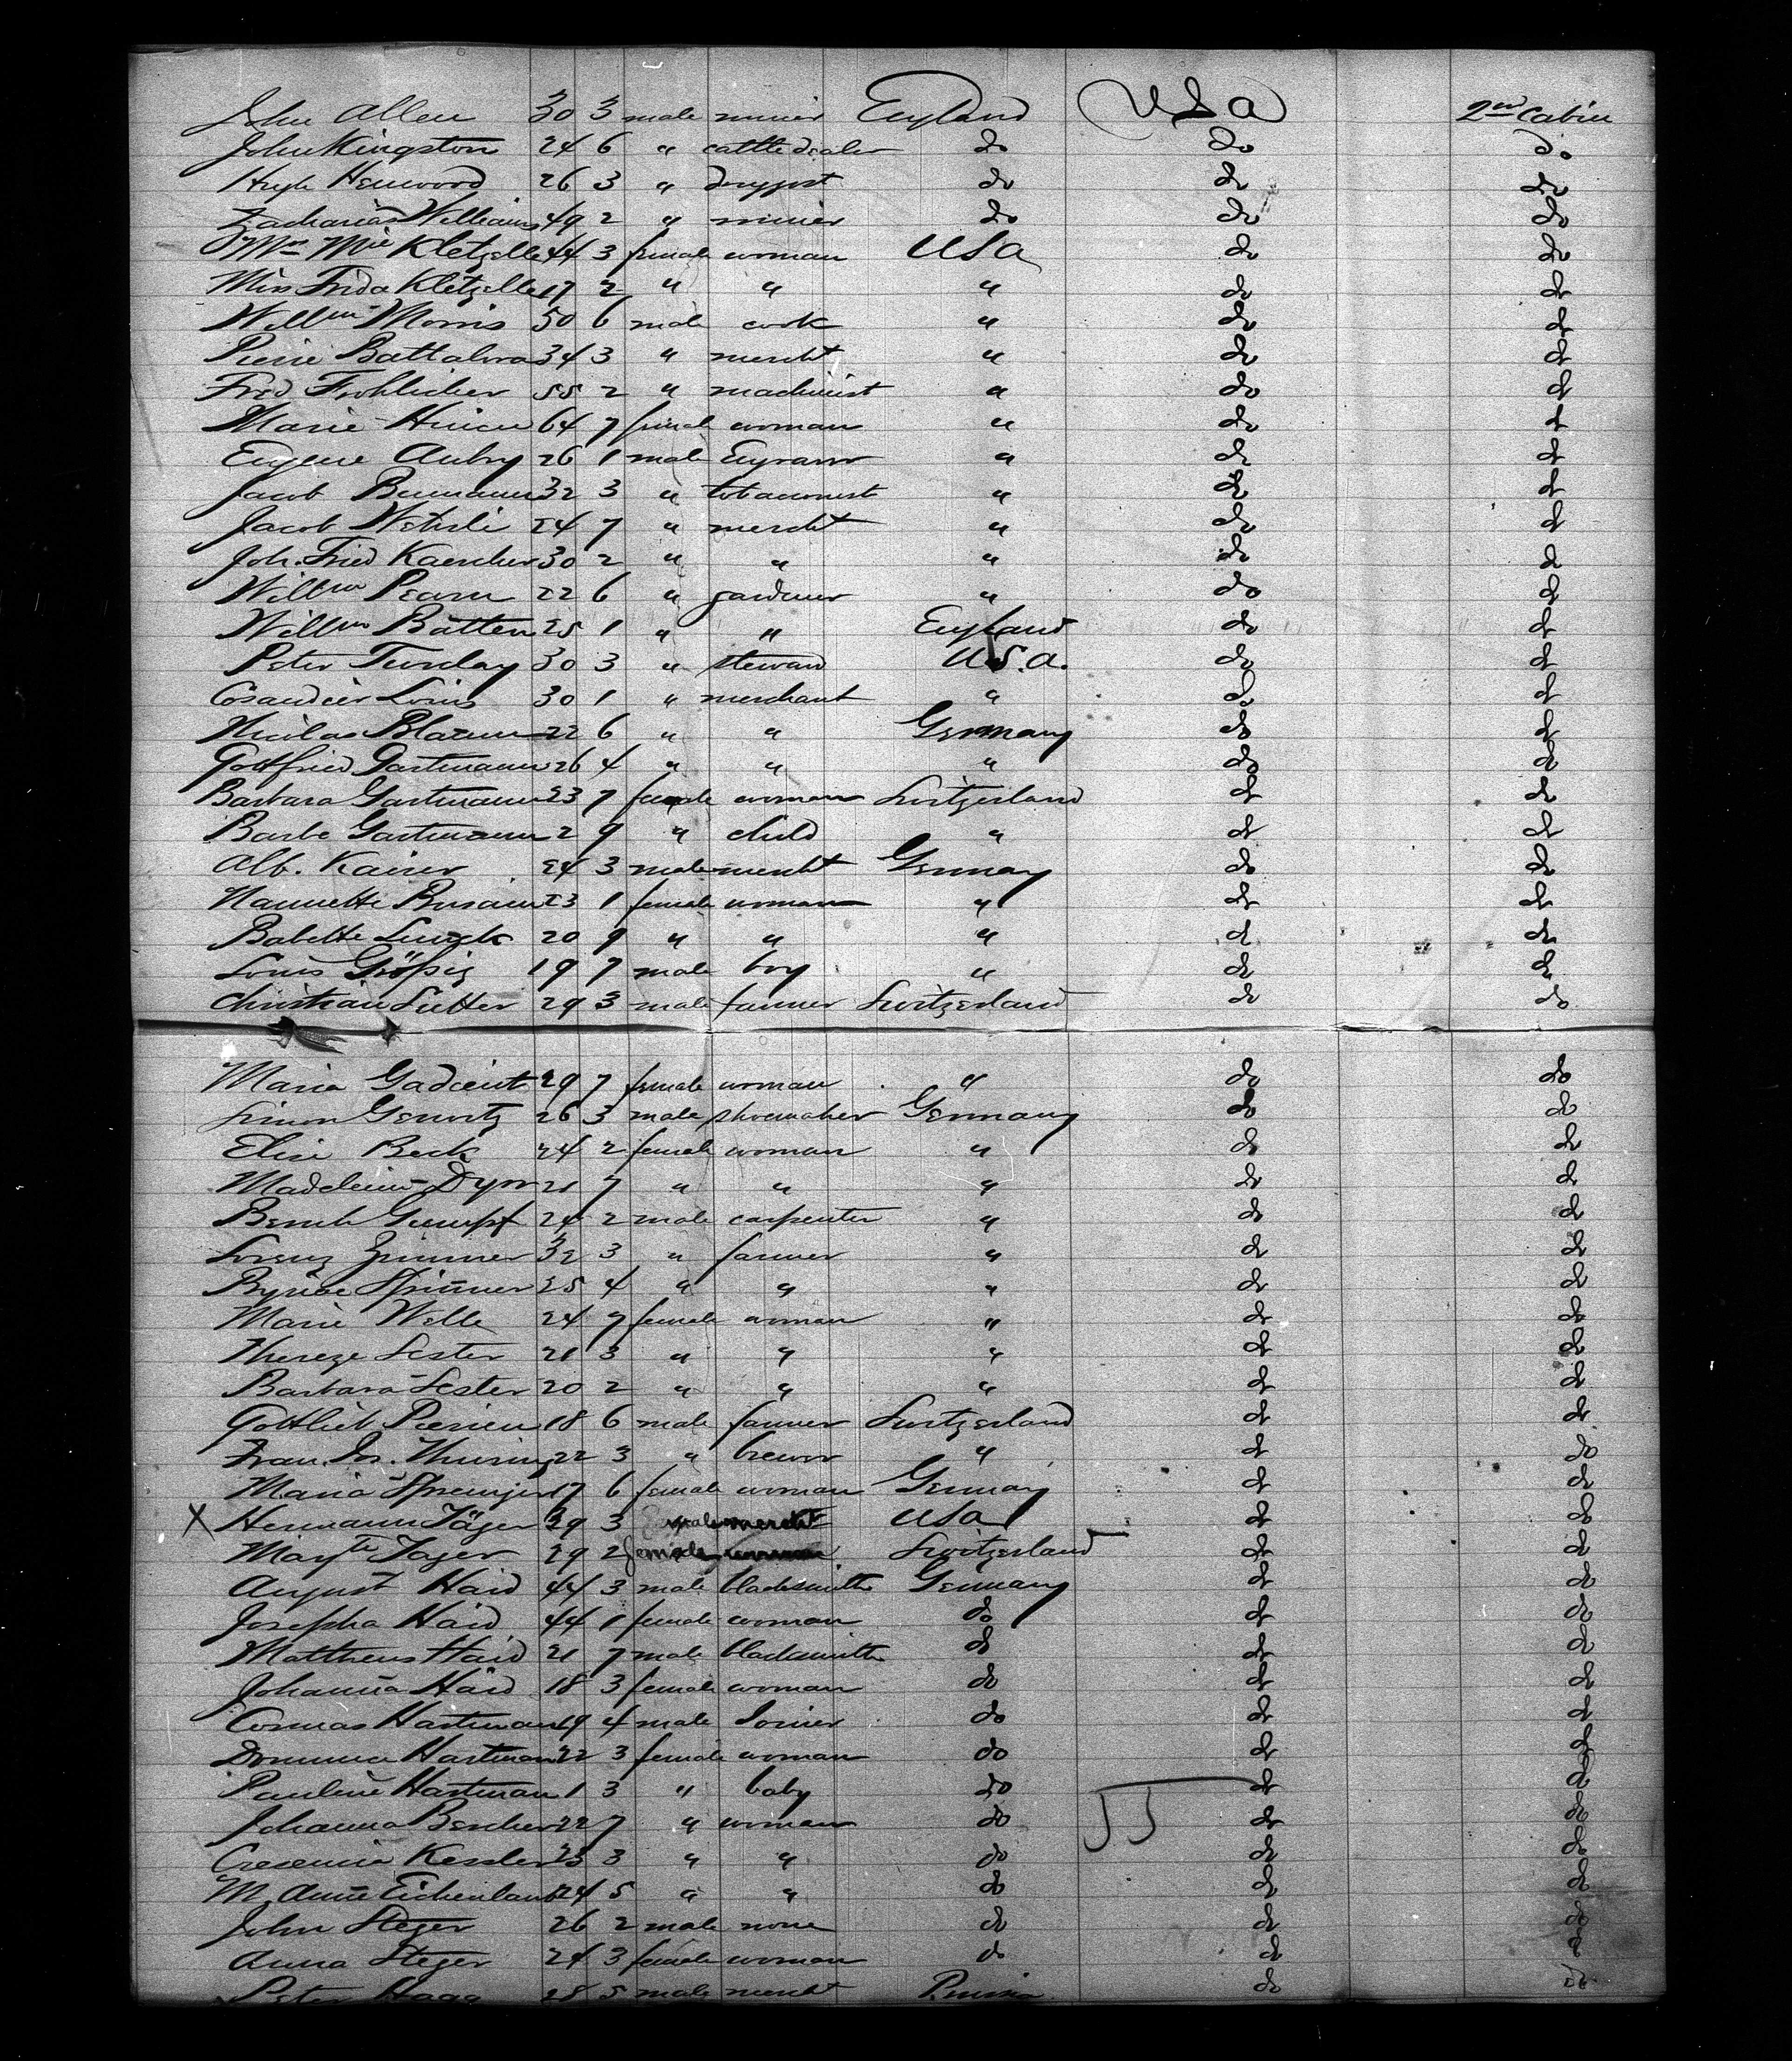 John Allen 30 3 male miner England USA 2nd Cabin
John Kingston 24 6 " cattle dealer do do do
Hugh Henwood 26 3 " druggist do do do
Zacharias Williams 49 2 " miner do do do
Mrs Mie Kletzelle 44 3 female woman USA do do
Miss Frida Kletzelle 17 2 " " " do do
Willm Morris 50 6 male cook " do do
Pierre 34 3 " mercht " do do
Fred Frohlicher 55 2 " machinist " do do
Marie 64 7 female woman " do do
Eugene Aubry 26 1 male " do do
Jacob 32 3 " tobacconist " do do
Jacob Wehrli 24 7 " mercht " do do
Joh. Fried Kaercher 30 2 " " " do do
Willm Pearn 22 6 " gardener " do do
Willm Batten 25 1 " " England do do
Peter 30 3 " steward U.S.A. do do
Louis 30 1 " merchant " do do
Nicolas 22 6 " " Germany do do
Gottfried Gartmann 26 4 " " " do do
Barbara Gartmann 23 7 female woman Switzerland do do
Barbe Gartmann 2 9 " child " do do
Alb. Kaiser 24 3 male mercht Germany do do
Nannette 23 1 female woman " do do
Babette 20 9 " " " do do
Louis 19 7 male boy " do do
Christian Sutter 29 3 male farmer Switzerland do do
Maria Gadient 29 7 female woman " do do
Simon 26 3 male shoemaker Germany do do
Elise Beck 24 2 female woman " do do
Madeleine 21 7 " " " do do
Bernh Gumpf 24 2 male carpenter " do do
Lorenz Zimmer 32 3 " farmer " do do
25 4 " " " do do
Marie Welle 24 7 female woman " do do
Thereze Lester 21 3 " " " do do
Barbara Lester 20 2 " " " do do
Gottlieb 18 6 male farmer Switzerland do do
Fran. Jos. Thuring 22 3 " brewer " do do
Maria Sprenger 17 6 female woman Germany do do
X Hermann Jäger 39 3 male mercht USA do do
Mary Jager 29 2 female woman Switzerland do do
August Haid 44 3 male blacksmith Germany do do
Josepha Haid 44 1 female woman do do do
Mattheus Haid 21 7 male blacksmith do do do
Johanna Haid 18 3 female woman do do do
Cosmas Hartman 29 4 male Joiner do do do
Hartman 22 3 female woman do do do
Pauline Hartman 1 3 " baby do do do
Johanna Bescher 22 7 " woman do do do
Crescencia Kessler 23 3 " " do do do
M. Anne Eichenlaub 24 5 " " do do do
John Steger 26 2 male none do do do
Anna Steger 24 3 female woman do do do
Peter Haag 28 5 male mercht do do